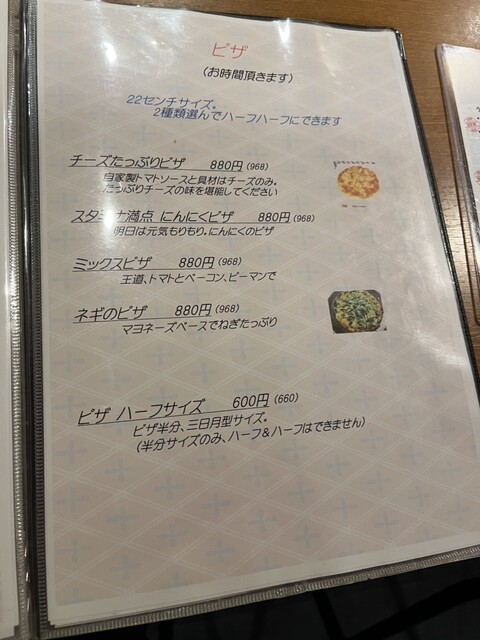 ピザ
(お時間頂きます)
22センチサイズ。
2種類選んでハーフハーフにできます
チーズたっぷりピザ 880円(968)
自家製トマトソースと具材はチーズのみ。
たっぷりチーズの味を堪能してください
スタミナ満点 にんにくピザ 880円(968)
明日は元気もりもり。にんにくのピザ
ミックスピザ 880円(968)
王道、トマトとベーコン、ピーマンで
ネギのピザ 880円(968)
マヨネーズベースでねぎたっぷり
ピザ ハーフサイズ 600円(660)
ピザ半分、三日月型サイズ。
(半分サイズのみ、ハーフ&ハーフはできません)